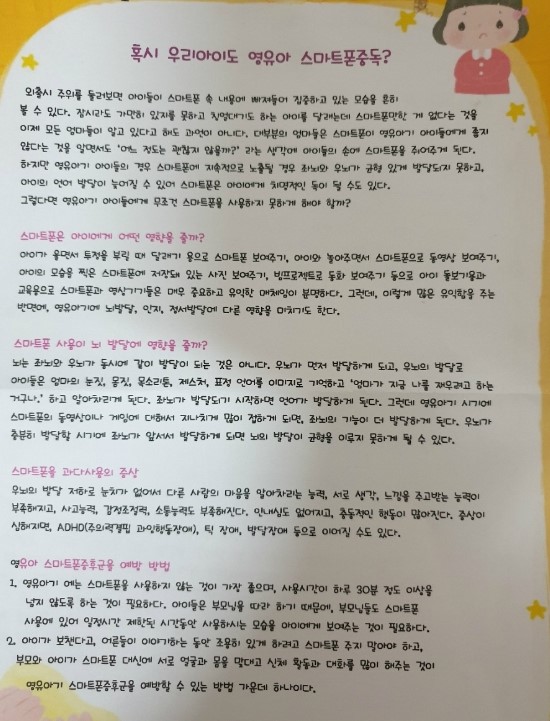 혹시 우리아이도 영유아 스마트폰중독?
외출시 주위를 둘러보면 아이들이 스마트폰 속 내용에 빠져들어 집중하고 있는 모습을 흔히
볼 수 있다. 잠시라도 가만히 있지를 못하고 칭얼대기도 하는 아이를 달래는데 스마트폰만한 게 없다는 것을
이제 모든 엄마들이 알고 있다고 해도 과언이 아니다. 대부분의 엄마들은 스마트폰이 영유아기 아이들에게 좋지
않다는 것을 알면서도 '어느 정도는 괜찮지 않을까?' 라는 생각에 아이들의 손에 스마트폰을 쥐어주게 된다.
하지만 영유아기 아이들의 경우 스마트폰에 지속적으로 노출될 경우 좌뇌와 우뇌가 균형 있게 발달되지 못하고,
아이의 언어 발달이 늦어질 수 있어 스마트폰은 아이에게 치명적인 독이 될 수도 있다.
그렇다면 영유아기 아이들에게 무조건 스마트폰을 사용하지 못하게 해야 할까?
스마트폰은 아이에게 어떤 영향을 줄까?
아이가 울면서 투정을 부릴 때 달래기 용으로 스마트폰 보여주기, 아이와 놀아주면서 스마트폰으로 동영상 보여주기,
아이의 모습을 찍은 스마트폰에 저장돼 있는 사진 보여주기, 빔프로젝트로 동화 보여주기 등으로 아이 돌보기용과
교육용으로 스마트폰과 영상기기들은 매우 중요하고 유익한 매체임이 분명하다. 그런데, 이렇게 많은 유익함을 주는
반면에, 영유아기에 뇌발달, 인지, 정서발달에 다른 영향을 미치기도 한다.
스마트폰 사용이 뇌 발달에 영향을 줄까?
뇌는 좌뇌와 우뇌가 동시에 같이 발달이 되는 것은 아니다. 우뇌가 먼저 발달하게 되고, 우뇌의 발달로
아이들은 엄마의 눈짓, 몸짓, 목소리톤, 제스처, 표정 언어를 이미지로 기억하고 '엄마가 지금 나를 재우려고 하는
거구나.' 하고 알아차리게 된다. 좌뇌가 발달되기 시작하면 언어가 발달하게 된다. 그런데 영유아기 시기에
스마트폰의 동영상이나 게임에 대해서 지나치게 많이 접하게 되면, 좌뇌의 기능이 더 발달하게 된다. 우뇌가
충분히 발달할 시기에 좌뇌가 앞서서 발달하게 되면 뇌의 발달이 균형을 이루지 못하게 될 수 있다.
스마트폰을 과다사용의 증상
우뇌의 발달 저하로 눈치가 없어서 다른 사람의 마음을 알아차리는 능력, 서로 생각, 느낌을 주고받는 능력이
부족해지고, 사고능력, 감정조절력, 소통능력도 부족해진다. 인내심도 없어지고, 충동적인 행동이 많아진다. 증상이
심해지면, ADHD(주의력결핍 과잉행동장애), 틱 장애, 발달장애 등으로 이어질 수도 있다.
영유아 스마트폰증후군을 예방 방법
1. 영유아기 에는 스마트폰을 사용하지 않는 것이 가장 좋으며, 사용시간이 하루 30분 정도 이상을
넘지 않도록 하는 것이 필요하다. 아이들은 부모님을 따라 하기 때문에, 부모님들도 스마트폰
사용에 있어 일정시간 제한된 시간동안 사용하시는 모습을 아이에게 보여주는 것이 필요하다.
2. 아이가 보챈다고, 어른들이 이야기하는 동안 조용히 있게 하려고 스마트폰 주지 말아야 하고,
부모와 아이가 스마트폰 대신에 서로 얼굴과 몸을 맞대고 신체 활동과 대화를 많이 해주는 것이
영유아기 스마트폰증후군을 예방할 수 있는 방법 가운데 하나이다.